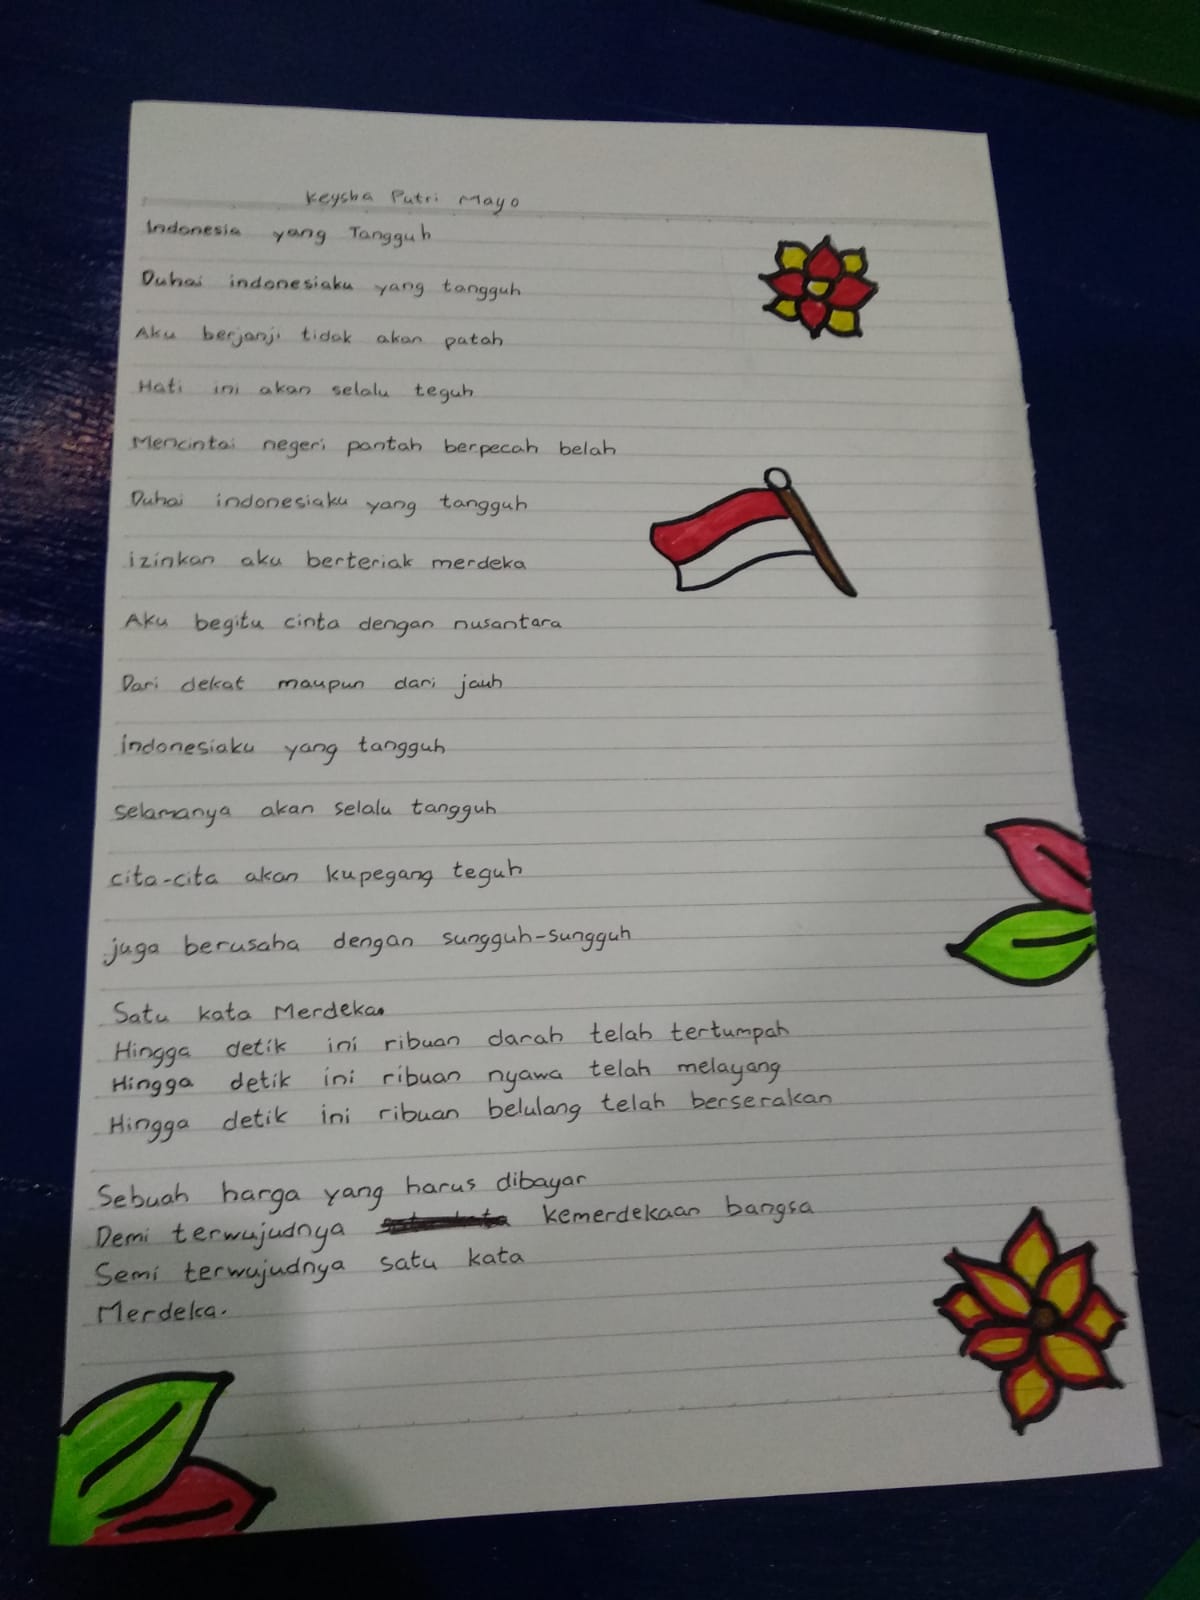 Keysha Putri Mayo
Indonesia yang Tangguh
Duhai indonesiaku yang tangguh
Aku berjanji tidak akan patah
Hati ini akan selalu teguh
Mencintai negeri pantah berpecah belah
Duhai indonesiaku yang tangguh
izinkan aku berteriak merdeka
Aku begitu cinta dengan nusantara
Dari dekat maupun dari jauh
indonesiaku yang tangguh
selamanya akan selalu tangguh
cita-cita akan kupegang teguh
juga berusaha dengan sungguh-sungguh
Satu kata Merdeka.
Hingga detik ini ribuan darah telah tertumpah
Hingga detik ini ribuan nyawa telah melayang
Hingga detik ini ribuan belulang telah berserakan
Sebuah harga yang harus dibayar
Demi terwujudnya kemerdekaan bangsa
Semi terwujudnya satu kata
Merdeka.